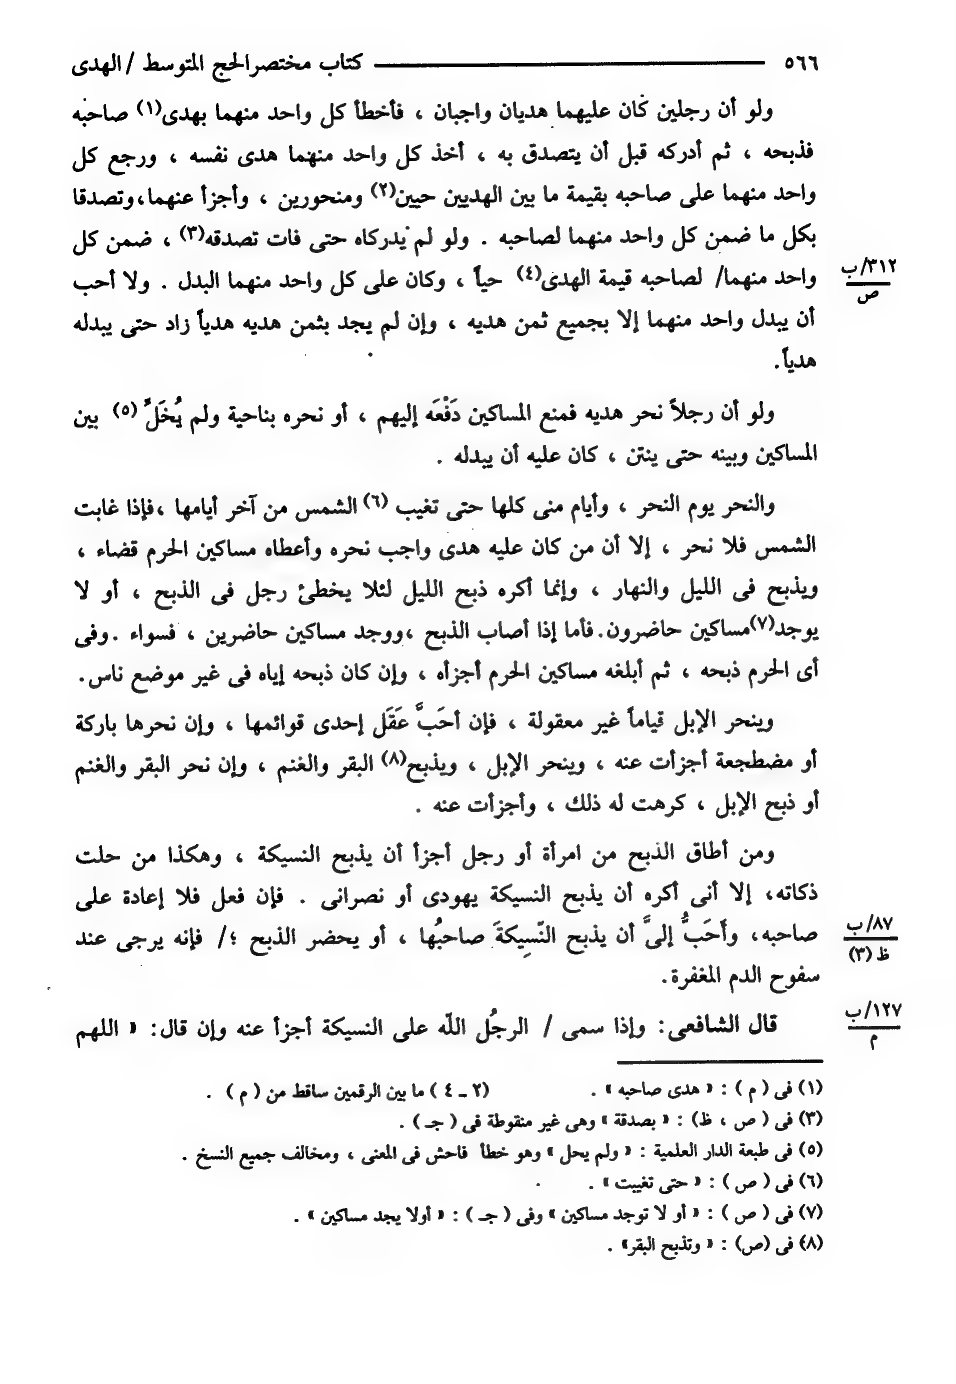 ٥٦٦ كتاب مختصر الحج المتوسط / الهدى
ولو أن رجلين كان عليهما هديان واجبان ، فأخطأ كل واحد منهما بهدى(١) صاحبه
فذبحه ، ثم أدركه قبل أن يتصدق به ، أخذ كل واحد منهما هدى نفسه ، ورجع كل
واحد منهما على صاحبه بقيمة ما بين الهديين حيين(٢) ومنحورين ، وأجزأ عنهما،وتصدقا
بكل ما ضمن كل واحد منهما لصاحبه . ولو لم يدركاه حتى فات تصدقه(٣) ، ضمن كل
واحد منهما/ لصاحبه قيمة الهدى(٤) حياً ، وكان على كل واحد منهما البدل . ولا أحب
٣١٢/ب
ص
أن يبدل واحد منهما إلا بجميع ثمن هديه ، وإن لم يجد بثمن هديه هدياً زاد حتى يبدله
هدياً.
ولو أن رجلاً نحر هديه فمنع المساكين دَفْعَه إليهم ، أو نحره بناحية ولم يُخَلِّ (٥) بين
المساكين وبينه حتى ينتن ، كان عليه أن يبدله .
والنحر يوم النحر ، وأيام منى كلها حتى تغيب (٦) الشمس من آخر أيامها ،فإذا غابت
الشمس فلا نحر ، إلا أن من كان عليه هدى واجب نحره وأعطاه مساكين الحرم قضاء ،
ويذبح فى الليل والنهار ، وإنما أكره ذبح الليل لئلا يخطئ رجل فى الذبح ، أو لا
يوجد(٧)مساكين حاضرون.فأما إذا أصاب الذبح ،ووجد مساكين حاضرين ، فسواء .وفى
أى الحرم ذبحه ، ثم أبلغه مساكين الحرم أجزأه ، وإن كان ذبحه إياه فى غير موضع ناس.
وينحر الإبل قياماً غير معقولة ، فإن أحَبَّ عَقَل إحدى قوائمها ، وإن نحرها باركة
أو مضطجعة أجزأت عنه ، وينحر الإبل ، ويذبح(٨) البقر والغنم ، وإن نحر البقر والغنم
أو ذبح الإبل ، كرهت له ذلك ، وأجزأت عنه .
ومن أطاق الذبح من امرأة أو رجل أجزأ أن يذبح النسيكة ، وهكذا من حلت
ذكاته، إلا أنى أكره أن يذبح النسيكة يهودى أو نصرانى . فإن فعل فلا إعادة على
صاحبه، وأَحَبُّ إلىَّ أن يذبح النّسِيكةَ صاحبُها ، أو يحضر الذبح ؛/ فإنه يرجى عند
٨٧/ب
ظ (٣)
سفوح الدم المغفرة.
قال الشافعى: وإذا سمى / الرجُل اللّه على النسيكة أجزأ عنه وإن قال: « اللهم
١٢٧/ب
م
(١) فى ( م ) : « هدى صاحبه » . (٢ ـ ٤ ) ما بين الرقمين ساقط من ( م ) .
(٣) فى ( ص ، ظ) : « بصدقة » وهى غير منقوطة فى ( جـ ) .
(٥) فى طبعة الدار العلمية : « ولم يحل » وهو خطأ فاحش فى المعنى ، ومخالف جميع النسخ .
(٦) فى ( ص ) : « حتى تغييت » .
(٧) فى ( ص ) : « أو لا توجد مساكين » وفى ( جـ ) : « أولا يجد مساكين » .
(٨) فى (ص) : « وتذبح البقر» .